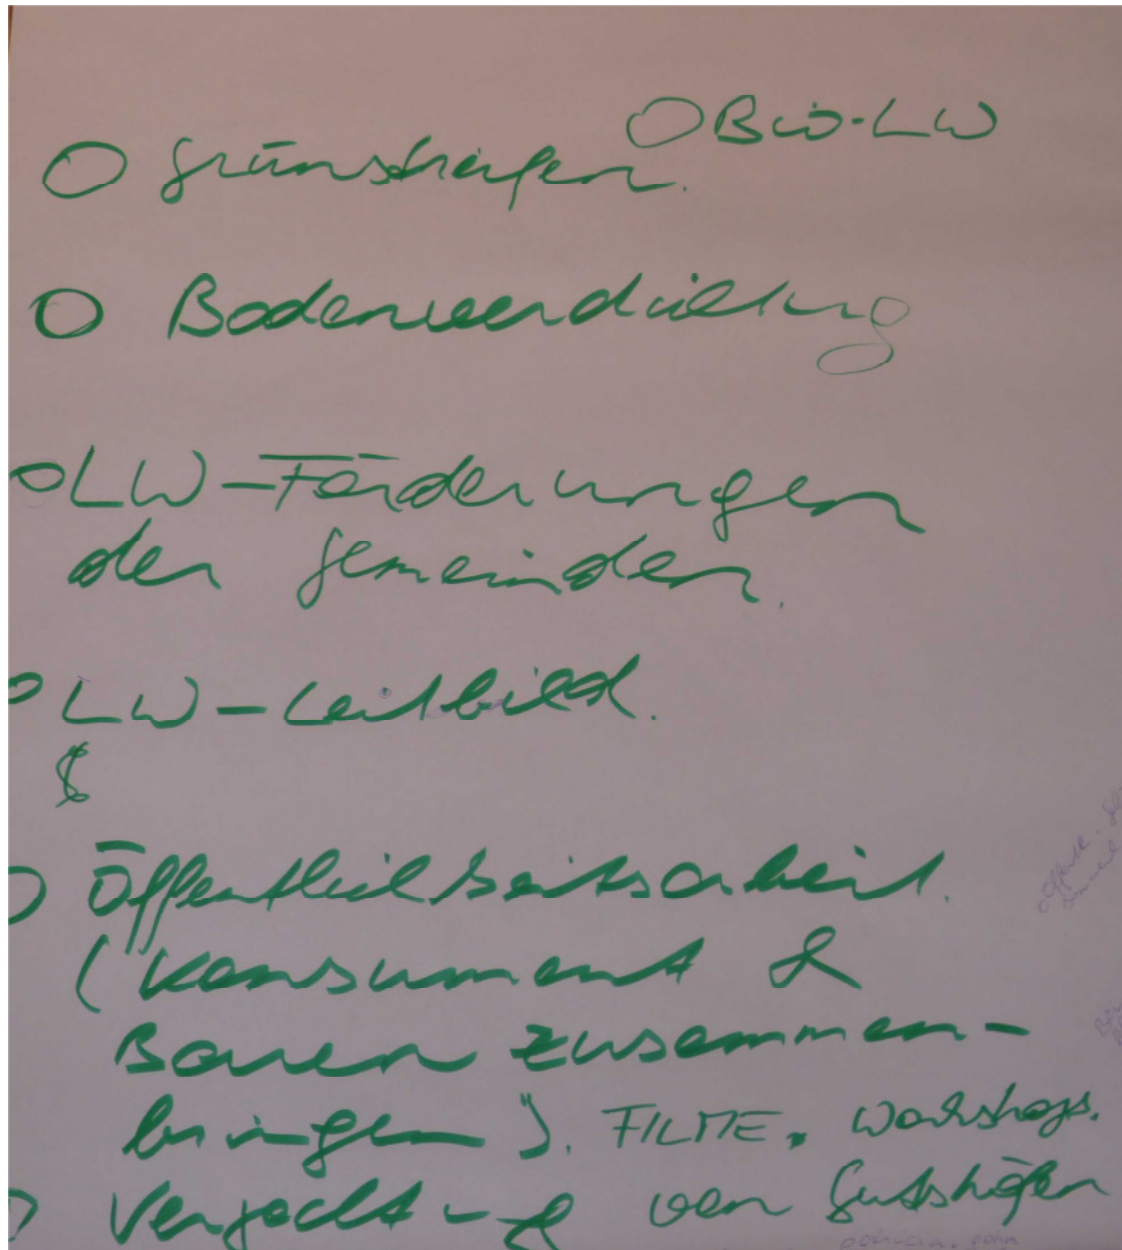 ○ Grünstreifen. ○ Bio-LW
○ Bodenverdichtung
○ LW-Förderungen
der Gemeinden.
○ LW-Leitbild.
○ Öffentlichkeitsarbeit.
(Konsument &
Bauern zusammen-
bringen). FILME. Workshops.
○ Verpachtung von Gutshöfen